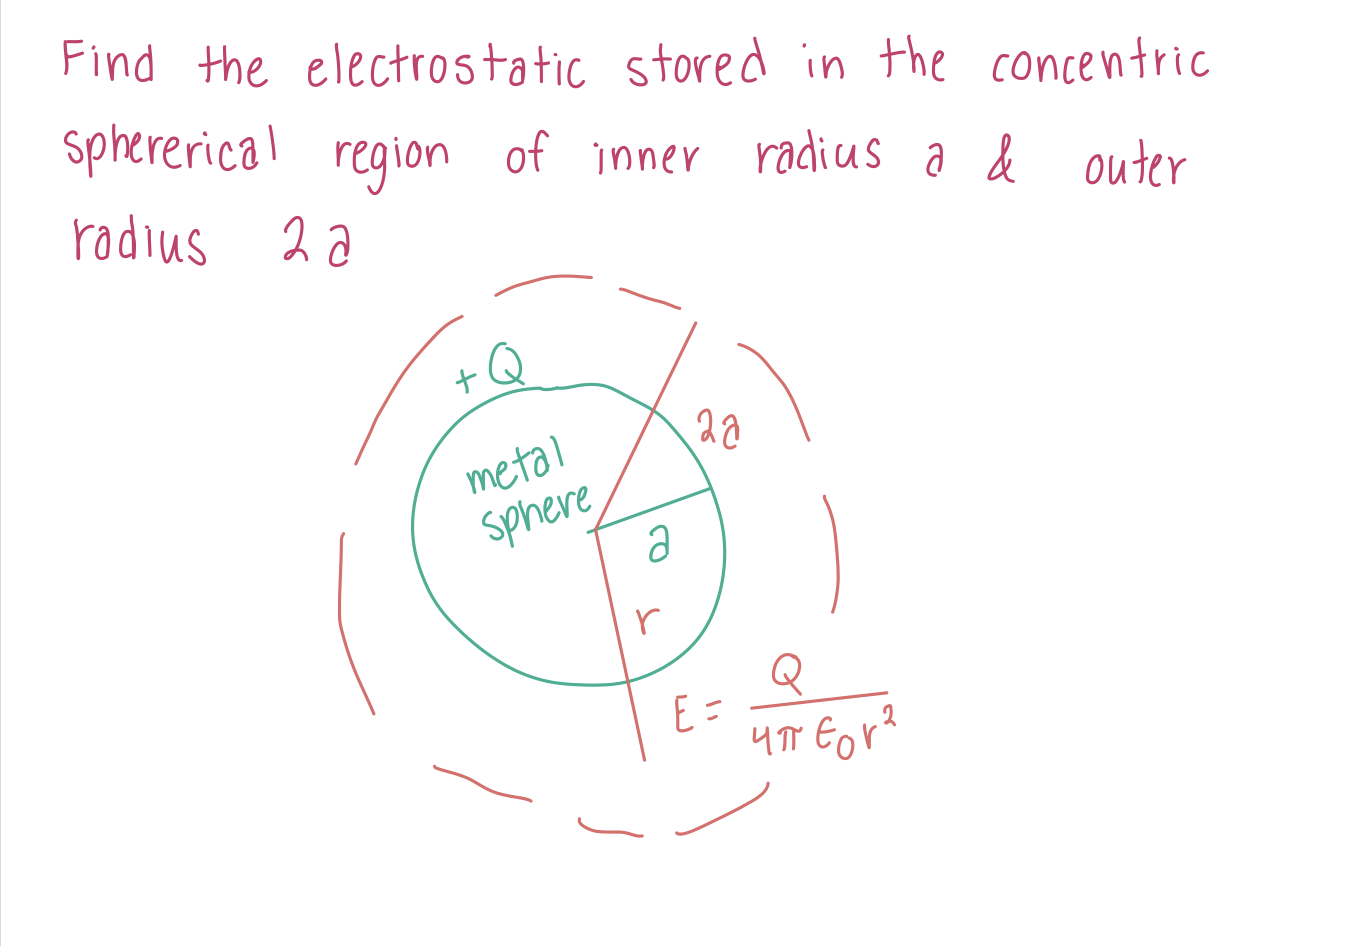 Find the electrostatic stored in the concentric
sphererical region of inner radius a & outer
radius 2a
+Q
2a
metal
sphere
a
r
E = Q / 4π ε₀ r²